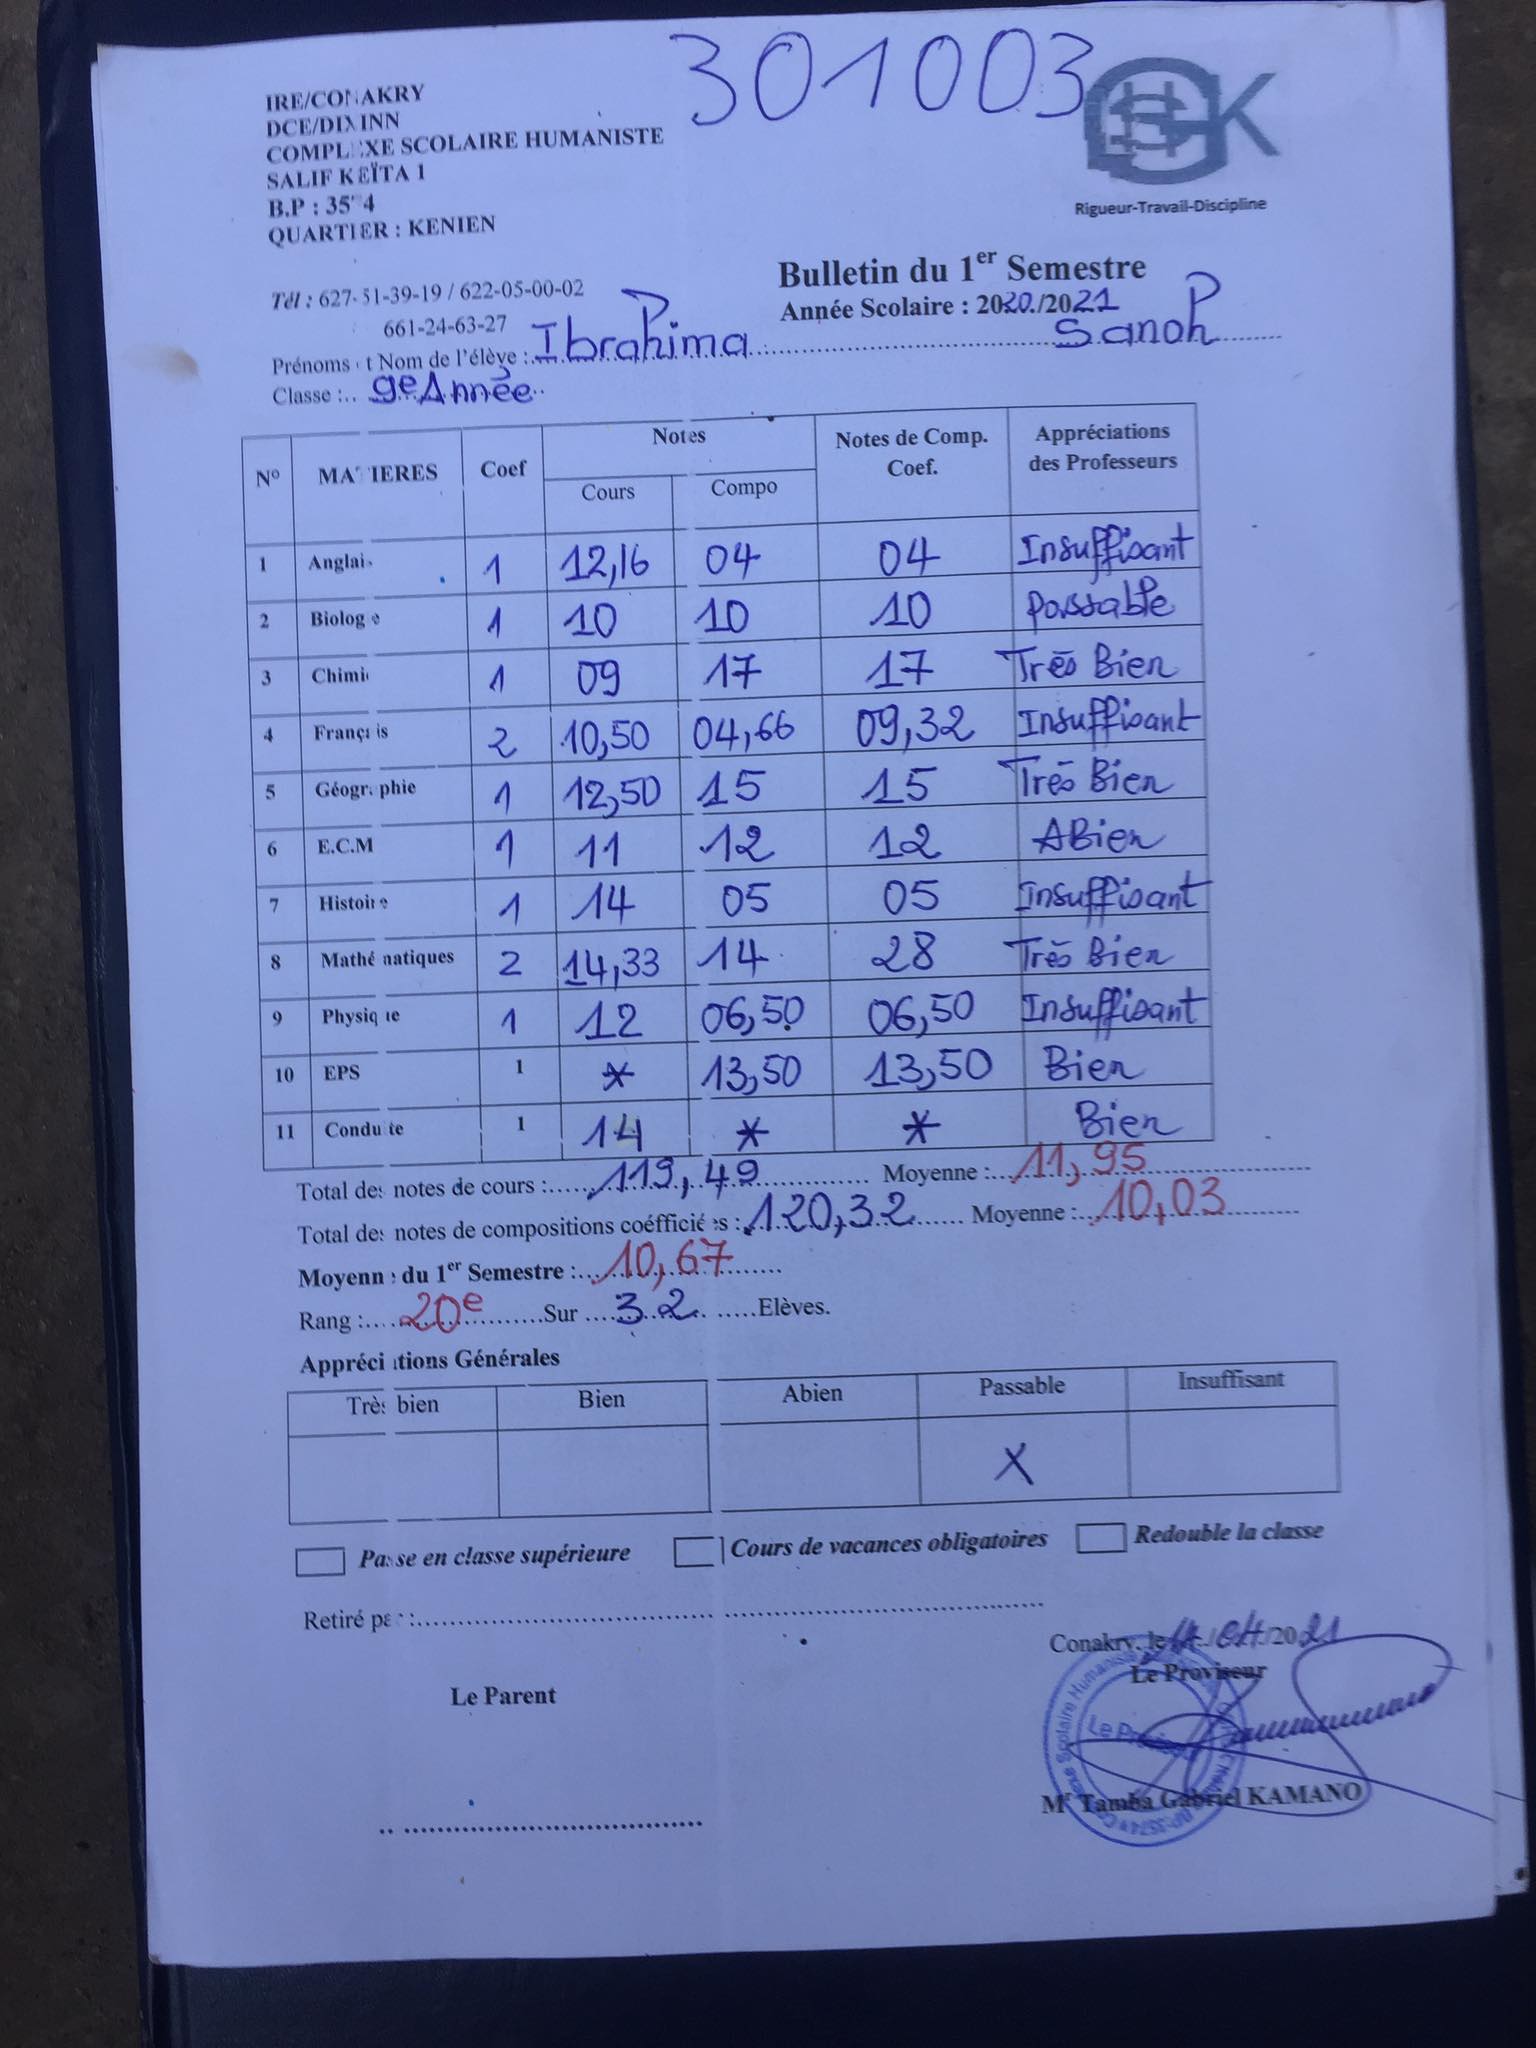 301003
IRE/CONAKRY
DCE/DIXINN
COMPLEXE SCOLAIRE HUMANISTE
SALIF KEÏTA 1
B.P : 35 4
QUARTIER : KENIEN
Rigueur-Travail-Discipline
Tél : 627-51-39-19 / 622-05-00-02
661-24-63-27
Bulletin du 1er Semestre
Année Scolaire : 2020./2021
Prénoms et Nom de l'élève : Ibrahima Sanoh
Classe : 9e Année
N° MATIERES Coef Notes Notes de Comp. Coef. Appréciations des Professeurs
Cours Compo
1 Anglais 1 12,16 04 04 Insuffisant
2 Biologie 1 10 10 10 Passable
3 Chimie 1 09 17 17 Très Bien
4 Français 2 10,50 04,66 09,32 Insuffisant
5 Géographie 1 12,50 15 15 Très Bien
6 E.C.M 1 11 12 12 ABien
7 Histoire 1 14 05 05 Insuffisant
8 Mathématiques 2 14,33 14 28 Très Bien
9 Physique 1 12 06,50 06,50 Insuffisant
10 EPS 1 * 13,50 13,50 Bien
11 Conduite 1 14 * * Bien
Total des notes de cours : 119,49 Moyenne : 11,95
Total des notes de compositions coéfficiées : 120,32 Moyenne : 10,03
Moyenne du 1er Semestre : 10,67
Rang : 20e Sur 32 Elèves.
Appréciations Générales
Très bien Bien Abien Passable Insuffisant
X
Passe en classe supérieure Cours de vacances obligatoires Redouble la classe
Retiré par :
Conakry, le /04/2021
Le Parent Le Proviseur
Le Proviseur
Mr Tamba Gabriel KAMANO